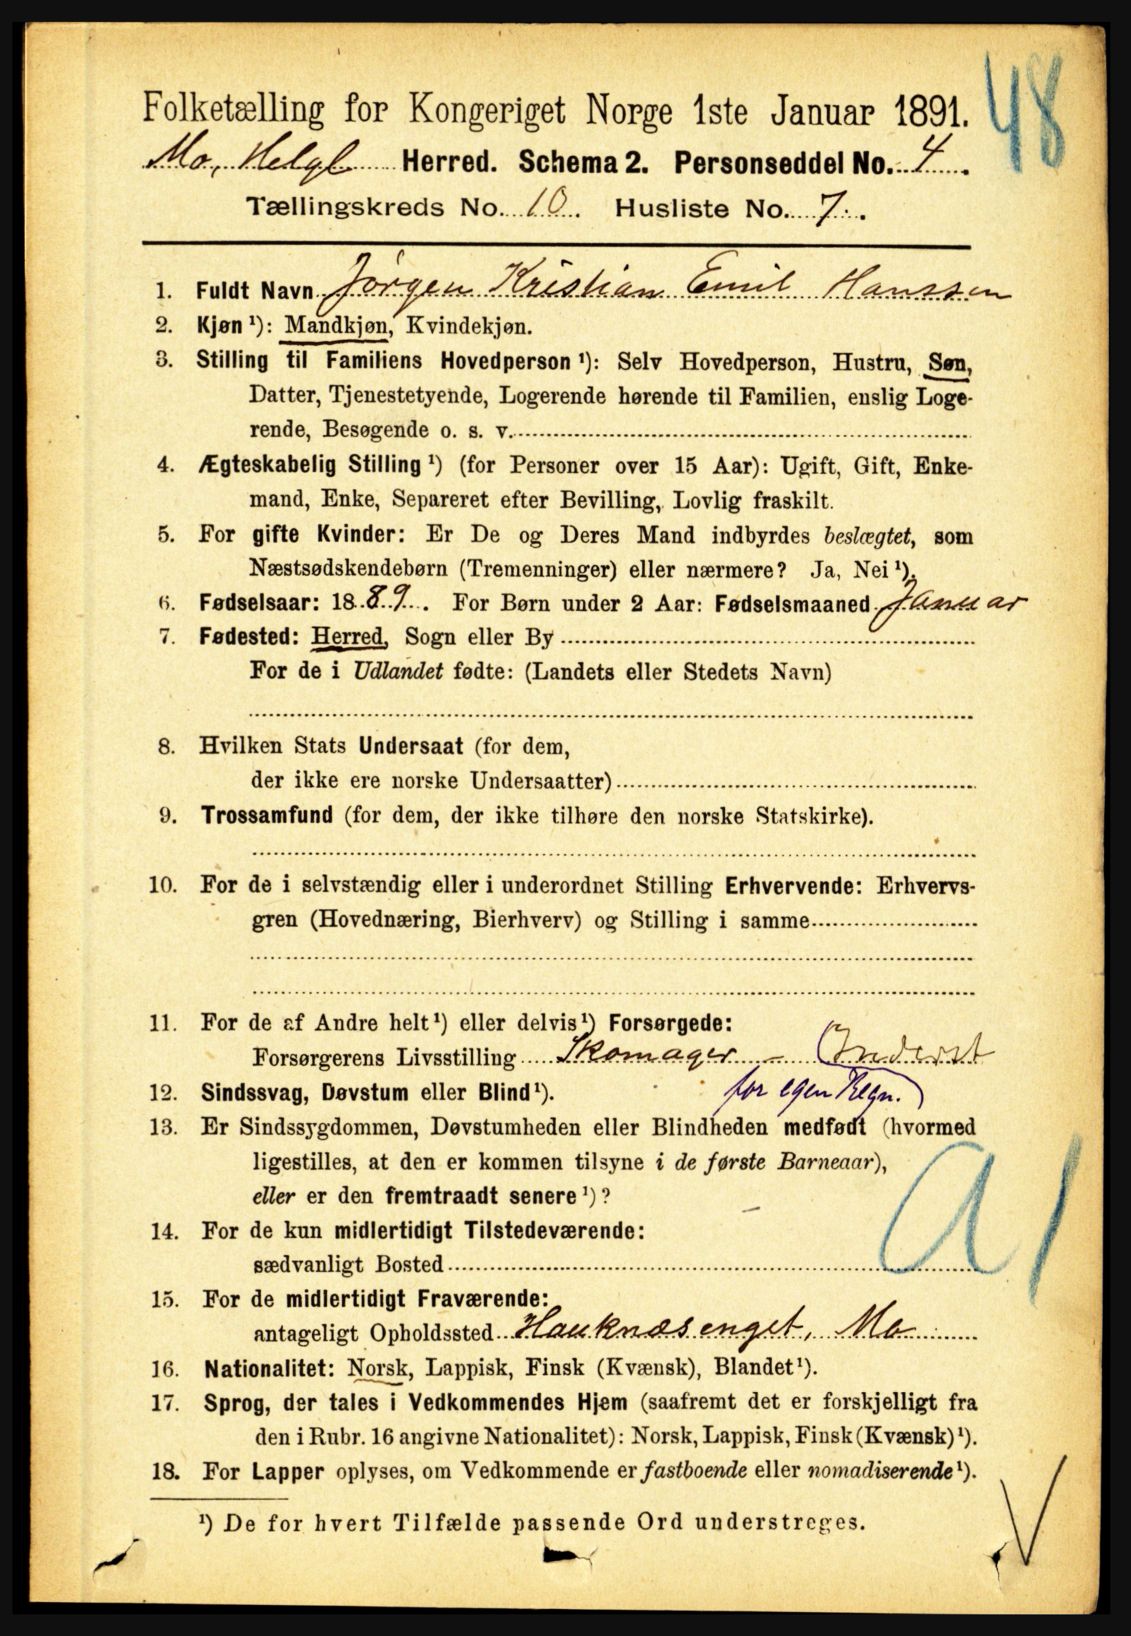 48
Folketælling for Kongeriget Norge 1ste Januar 1891.
Mo, Helgl Herred. Schema 2. Personseddel No. 4.
Tællingskreds No. 10. Husliste No. 7.
1. Fuldt Navn Jørgen Kristian Emil Hanssen
2. Kjøn ¹): Mandkjøn, Kvindekjøn.
3. Stilling til Familiens Hovedperson ¹): Selv Hovedperson, Hustru, Søn,
Datter, Tjenestetyende, Logerende hørende til Familien, enslig Loge-
rende, Besøgende o. s. v.
4. Ægteskabelig Stilling ¹) (for Personer over 15 Aar): Ugift, Gift, Enke-
mand, Enke, Separeret efter Bevilling, Lovlig fraskilt.
5. For gifte Kvinder: Er De og Deres Mand indbyrdes beslægtet, som
Næstsødskendebørn (Tremenninger) eller nærmere? Ja, Nei ¹).
6. Fødselsaar: 1889. For Børn under 2 Aar: Fødselsmaaned Januar
7. Fødested: Herred, Sogn eller By
For de i Udlandet fødte: (Landets eller Stedets Navn)
8. Hvilken Stats Undersaat (for dem,
der ikke ere norske Undersaatter)
9. Trossamfund (for dem, der ikke tilhøre den norske Statskirke).
10. For de i selvstændig eller i underordnet Stilling Erhvervende: Erhvervs-
gren (Hovednæring, Bierhverv) og Stilling i samme
11. For de af Andre helt ¹) eller delvis ¹) Forsørgede:
Forsørgerens Livsstilling Skomager - Inderst
for egen Regn.)
12. Sindssvag, Døvstum eller Blind ¹).
13. Er Sindssygdommen, Døvstumheden eller Blindheden medfødt (hvormed
ligestilles, at den er kommen tilsyne i de første Barneaar),
eller er den fremtraadt senere ¹)?
a1
14. For de kun midlertidigt Tilstedeværende:
sædvanligt Bosted
15. For de midlertidigt Fraværende:
antageligt Opholdssted Hauknæsenget, Mo
16. Nationalitet: Norsk, Lappisk, Finsk (Kvænsk), Blandet ¹).
17. Sprog, der tales i Vedkommendes Hjem (saafremt det er forskjelligt fra
den i Rubr. 16 angivne Nationalitet): Norsk, Lappisk, Finsk (Kvænsk) ¹).
18. For Lapper oplyses, om Vedkommende er fastboende eller nomadiserende ¹).
¹) De for hvert Tilfælde passende Ord understreges.